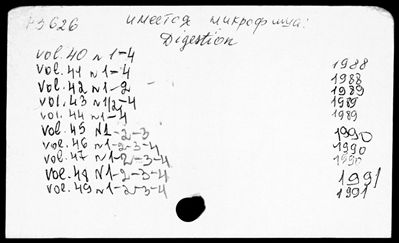 P3626 имеется микрофиша:
Digestion
vol. 40 N 1-4
vol. 41 N 1-4 1988
vol. 42 N 1-2 1988
vol. 43 N 1/2-4 1989
vol. 44 N 1-4 1989
vol. 45 N 1-2-3 1990
vol. 46 N 1-2-3-4 1990
vol. 47 N 1-2-3-4 1990
vol. 48 N 1-2-3-4 1991
vol. 49 N 1-2-3-4 1991